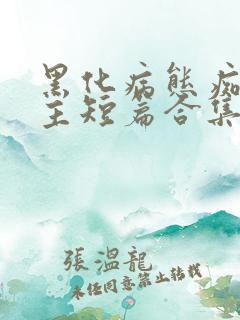 黑化病態痴
主短篇合集
張溫龍
未经同意禁止转载